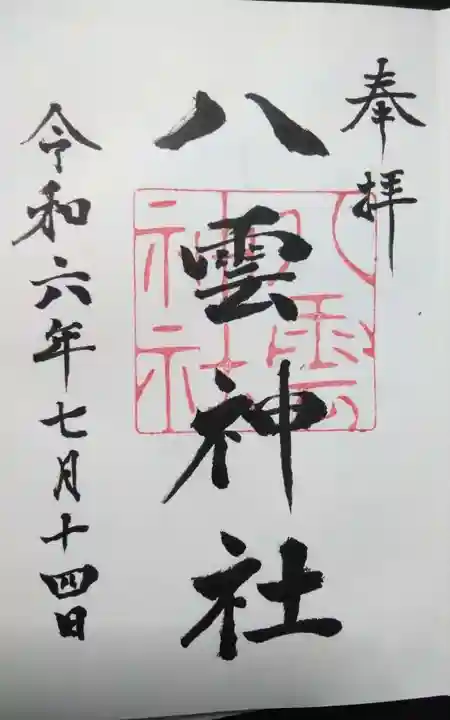 奉拝
八雲神社
八雲
神社
令和六年七月十四日